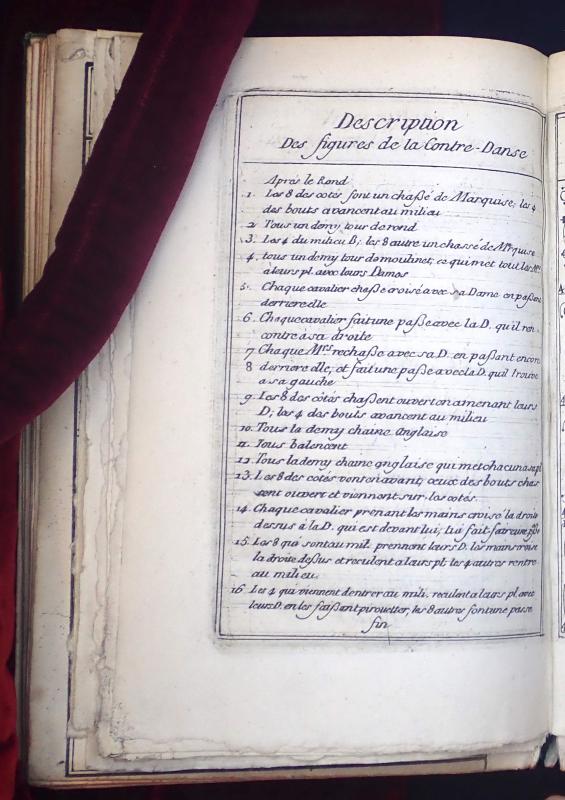 Description
Des figures de la Contre-Danse
Aprés le Rond
1. Les 8 des cotés font un chaßé de Marquise; les 4
des bouts avancent au milieu
2 Tous un demy tour de rond
3. Les 4 du milieu B; les 8 autre un chassé de Mquise
4. tous un demy tour de moulinet, ce qui met tout les Mrs
à leurs pl. avec leurs Dames
5. Chaque cavalier chaße croisé avec sa Dame en paßant
derriere elle
6. Chaque cavalier fait une paße avec la D. qu'il ren
contre à sa droite
7 Chaque Mrs rechaße avec sa D. en paßant encore
8 derriere elle, et fait une paße avec la D. quil trouve
a sa gauche
9. Les 8 des cotés chaßent ouvert en amenant leurs
D; les 4 des bouts avancent au milieu
10. Tous la demy chaine Anglaise
11. Tous balencent
12. Tous la demy chaine anglaise qui met chacun a sa pl
13. Les 8 des cotés vont en avant, ceux des bouts chas
sent ouvert et viennent sur les cotés.
14. Chaque cavalier prenant les mains croisé la droite
dessus à la D. qui est devant lui, lui fait faire une
15. Les 8 qui sont au mil. prennent leurs D. les mains croisé
la droite deßus et reculent a leurs pl; les 4 autres rentre
au milieu.
16 Les 4 qui viennent d'entrer au mili. reculent a leurs pl. avec
leurs D. en les faißant pirouetter, les 8 autres font une passe
fin